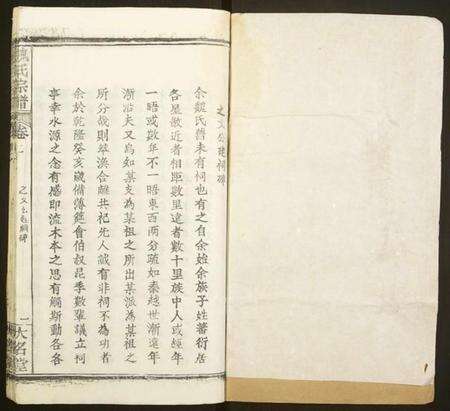 之文公建祠碑
余魏氏舊未有祠也有之自余始余族子姓蕃衍居
各星散近者相距數里遠者數十里族中人或經年
一晤或數年不一晤東西兩分疏如秦越世漸遠年
漸深夫又烏知某支為某祖之所出某派為某祖之
所分哉則萃渙合離共祀先人誠有非祠不為功者
余於乾隆癸亥歲備薄筵會伯叔昆季數輩議立祠
事幸水源之念有感即流木本之思有觸斯動各各
魏氏宗譜
卷一
之文公建祠碑
二
大名堂